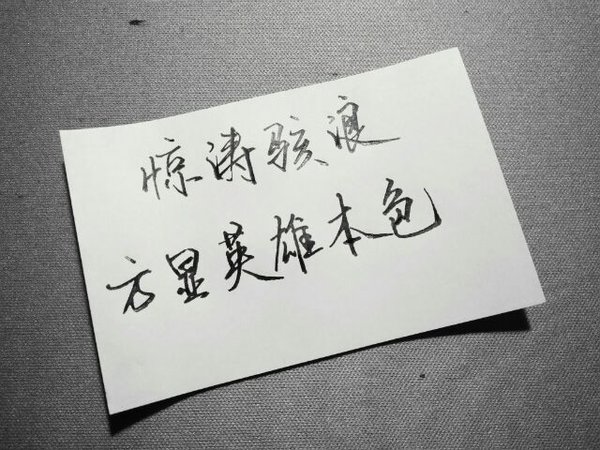 惊涛骇浪
方显英雄本色